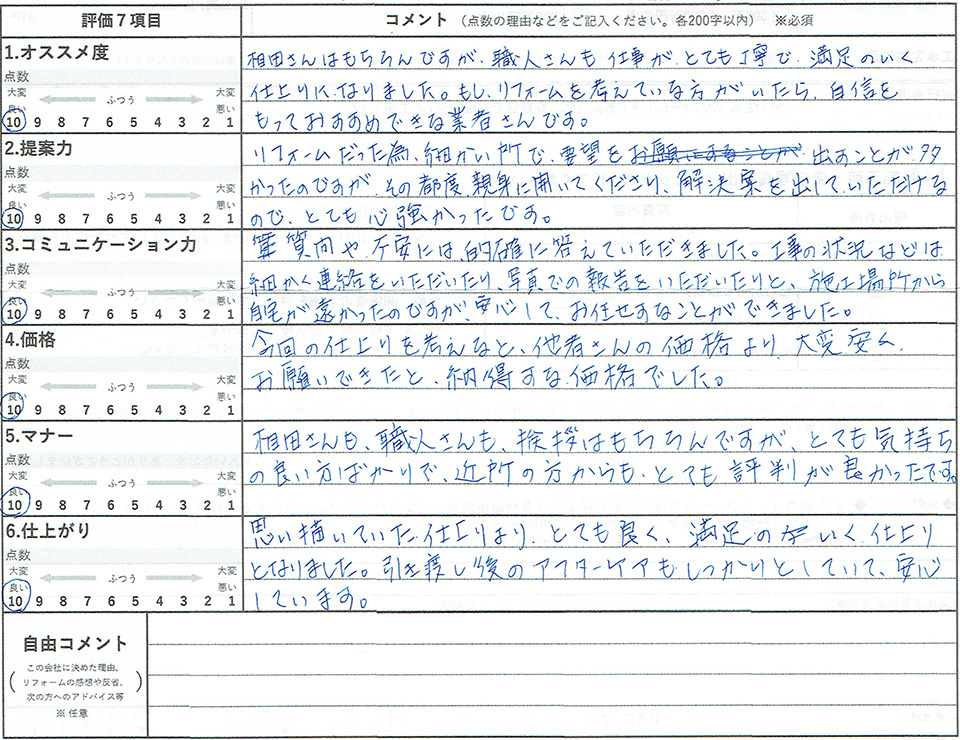 評価７項目
コメント （点数の理由などをご記入ください。各200字以内） ※必須
1.オススメ度
点数
大変 良い ふつう 大変 悪い
10 9 8 7 6 5 4 3 2 1
相田さんはもちろんですが、職人さんも仕事が、とても丁寧で、満足のいく
仕上りに、なりました。もし、リフォームを考えている方がいたら、自信を
もっておすすめできる業者さんです。
2.提案力
点数
大変 良い ふつう 大変 悪い
10 9 8 7 6 5 4 3 2 1
リフォームだった為、細かい所で、要望をお願いすることが 出すことが、多
かったのですが、その都度、親身に聞いてくださり、解決案を出して、いただける
ので、とても心強かったです。
3.コミュニケーション力
点数
大変 良い ふつう 大変 悪い
10 9 8 7 6 5 4 3 2 1
質問や、不安には、的確に答えていただきました。工事の状況などは、
細かく連絡をいただいたり、写真での報告をいただいたりと、施工場所から
自宅が遠かったのですが、安心して、お任せすることができました。
4.価格
点数
大変 良い ふつう 大変 悪い
10 9 8 7 6 5 4 3 2 1
今回の仕上りを考えると、他者さんの価格より、大変安く、
お願いできたと、納得する価格でした。
5.マナー
点数
大変 良い ふつう 大変 悪い
10 9 8 7 6 5 4 3 2 1
相田さんも、職人さんも、挨拶はもちろんですが、とても気持ち
の良い方ばかりで、近所の方からも、とても評判が良かったです。
6.仕上がり
点数
大変 良い ふつう 大変 悪い
10 9 8 7 6 5 4 3 2 1
思い描いていた仕上りより、とても良く、満足のいく、仕上り
となりました。引き渡し後のアフターケアもしっかりとしていて、安心
しています。
自由コメント
この会社に決めた理由、
リフォームの感想や反省、
次の方へのアドバイス等
※ 任意